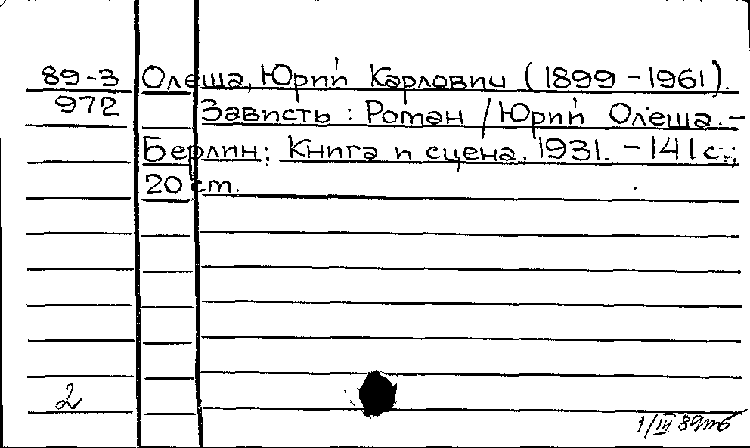 89-3 Олеша, Юрий Карлович (1899-1961).
972 Зависть : Роман / Юрий Олеша. -
Берлин: Книга и сцена, 1931. - 141 с.;
20 см.
2
1/III 89